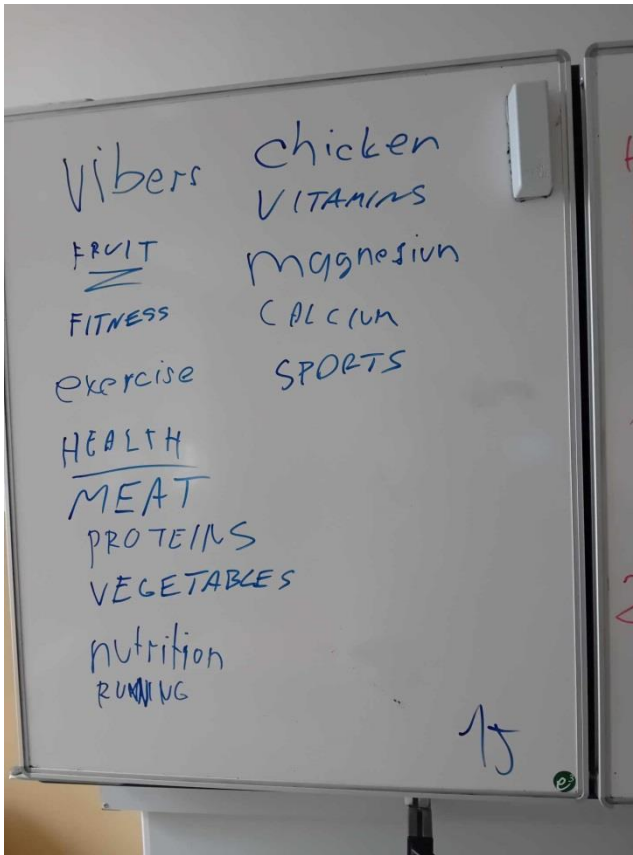 vibers
FRUIT
FITNESS
exercise
HEALTH
MEAT
PROTEINS
VEGETABLES
nutrition
RUNNING
chicken
VITAMINS
magnesiun
CALCIUM
SPORTS
15